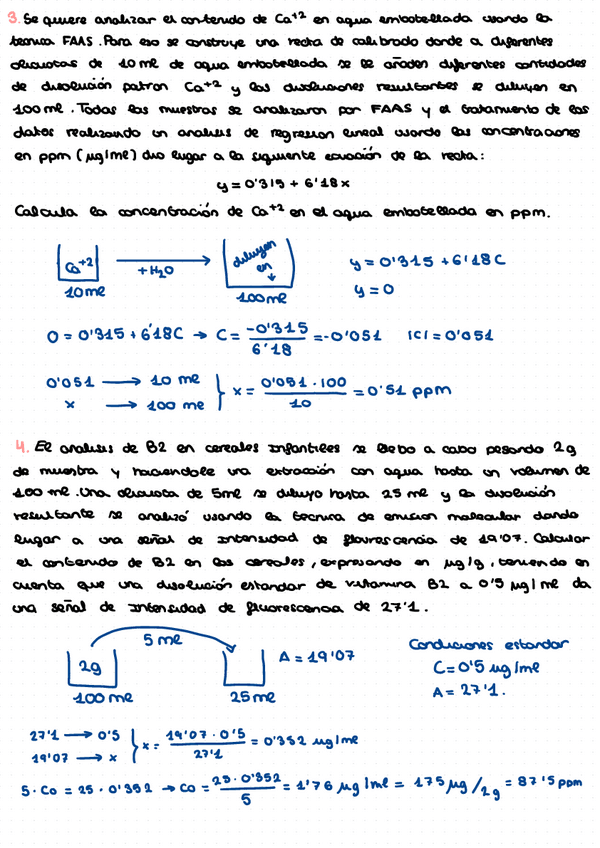 3. Se quiere analizar el contenido de Ca⁺² en agua embotellada usando la
tecnica FAAS. Para eso se construye una recta de calibrado donde a diferentes
alicuotas de 10 ml de agua embotellada se le añaden diferentes cantidades
de disolución patron Ca⁺² y las disoluciones resultantes se diluyen en
100 ml. Todas las muestras se analizaron por FAAS y el tratamiento de los
datos realizando un analisis de regresion lineal usando las concentraciones
en ppm (µg/ml) dio lugar a la siguiente ecuación de la recta:
y = 0'315 + 6'18x
Calcula la concentración de Ca⁺² en el agua embotellada en ppm.
Ca⁺²
+ H₂O
diluyen
en
10 ml
100 ml
y = 0'315 + 6'18C
y = 0
0 = 0'315 + 6'18C → C = -0'315 / 6'18 = -0'051 |C| = 0'051
0'051 → 10 ml
x → 100 ml
x = 0'051 · 100 / 10 = 0'51 ppm
4. El analisis de B2 en cereales infantiles se llebo a cabo pesando 2g
de muestra y haciendole una extracción con agua hasta un volumen de
100 ml. Una alicuota de 5ml se diluyo hasta 25 ml y la disolución
resultante se analizó usando la tecnica de emision molecular dando
lugar a una señal de intensidad de flourescencia de 19'07. Calcular
el contenido de B2 en los cereales, expresando en µg/g, teniendo en
cuenta que una disolución estandar de vitamina B2 a 0'5 µg/ml da
una señal de intensidad de fluorescencia de 27'1.
5 ml
2g
100 ml
25 ml
A = 19'07
Condiciones estandar
C = 0'5 µg/ml
A = 27'1.
27'1 → 0'5
19'07 → x
x = 19'07 · 0'5 / 27'1 = 0'352 µg/ml
5 · Co = 25 · 0'352 → Co = 25 · 0'352 / 5 = 1'76 µg/ml = 175 µg/2g = 87'5 ppm